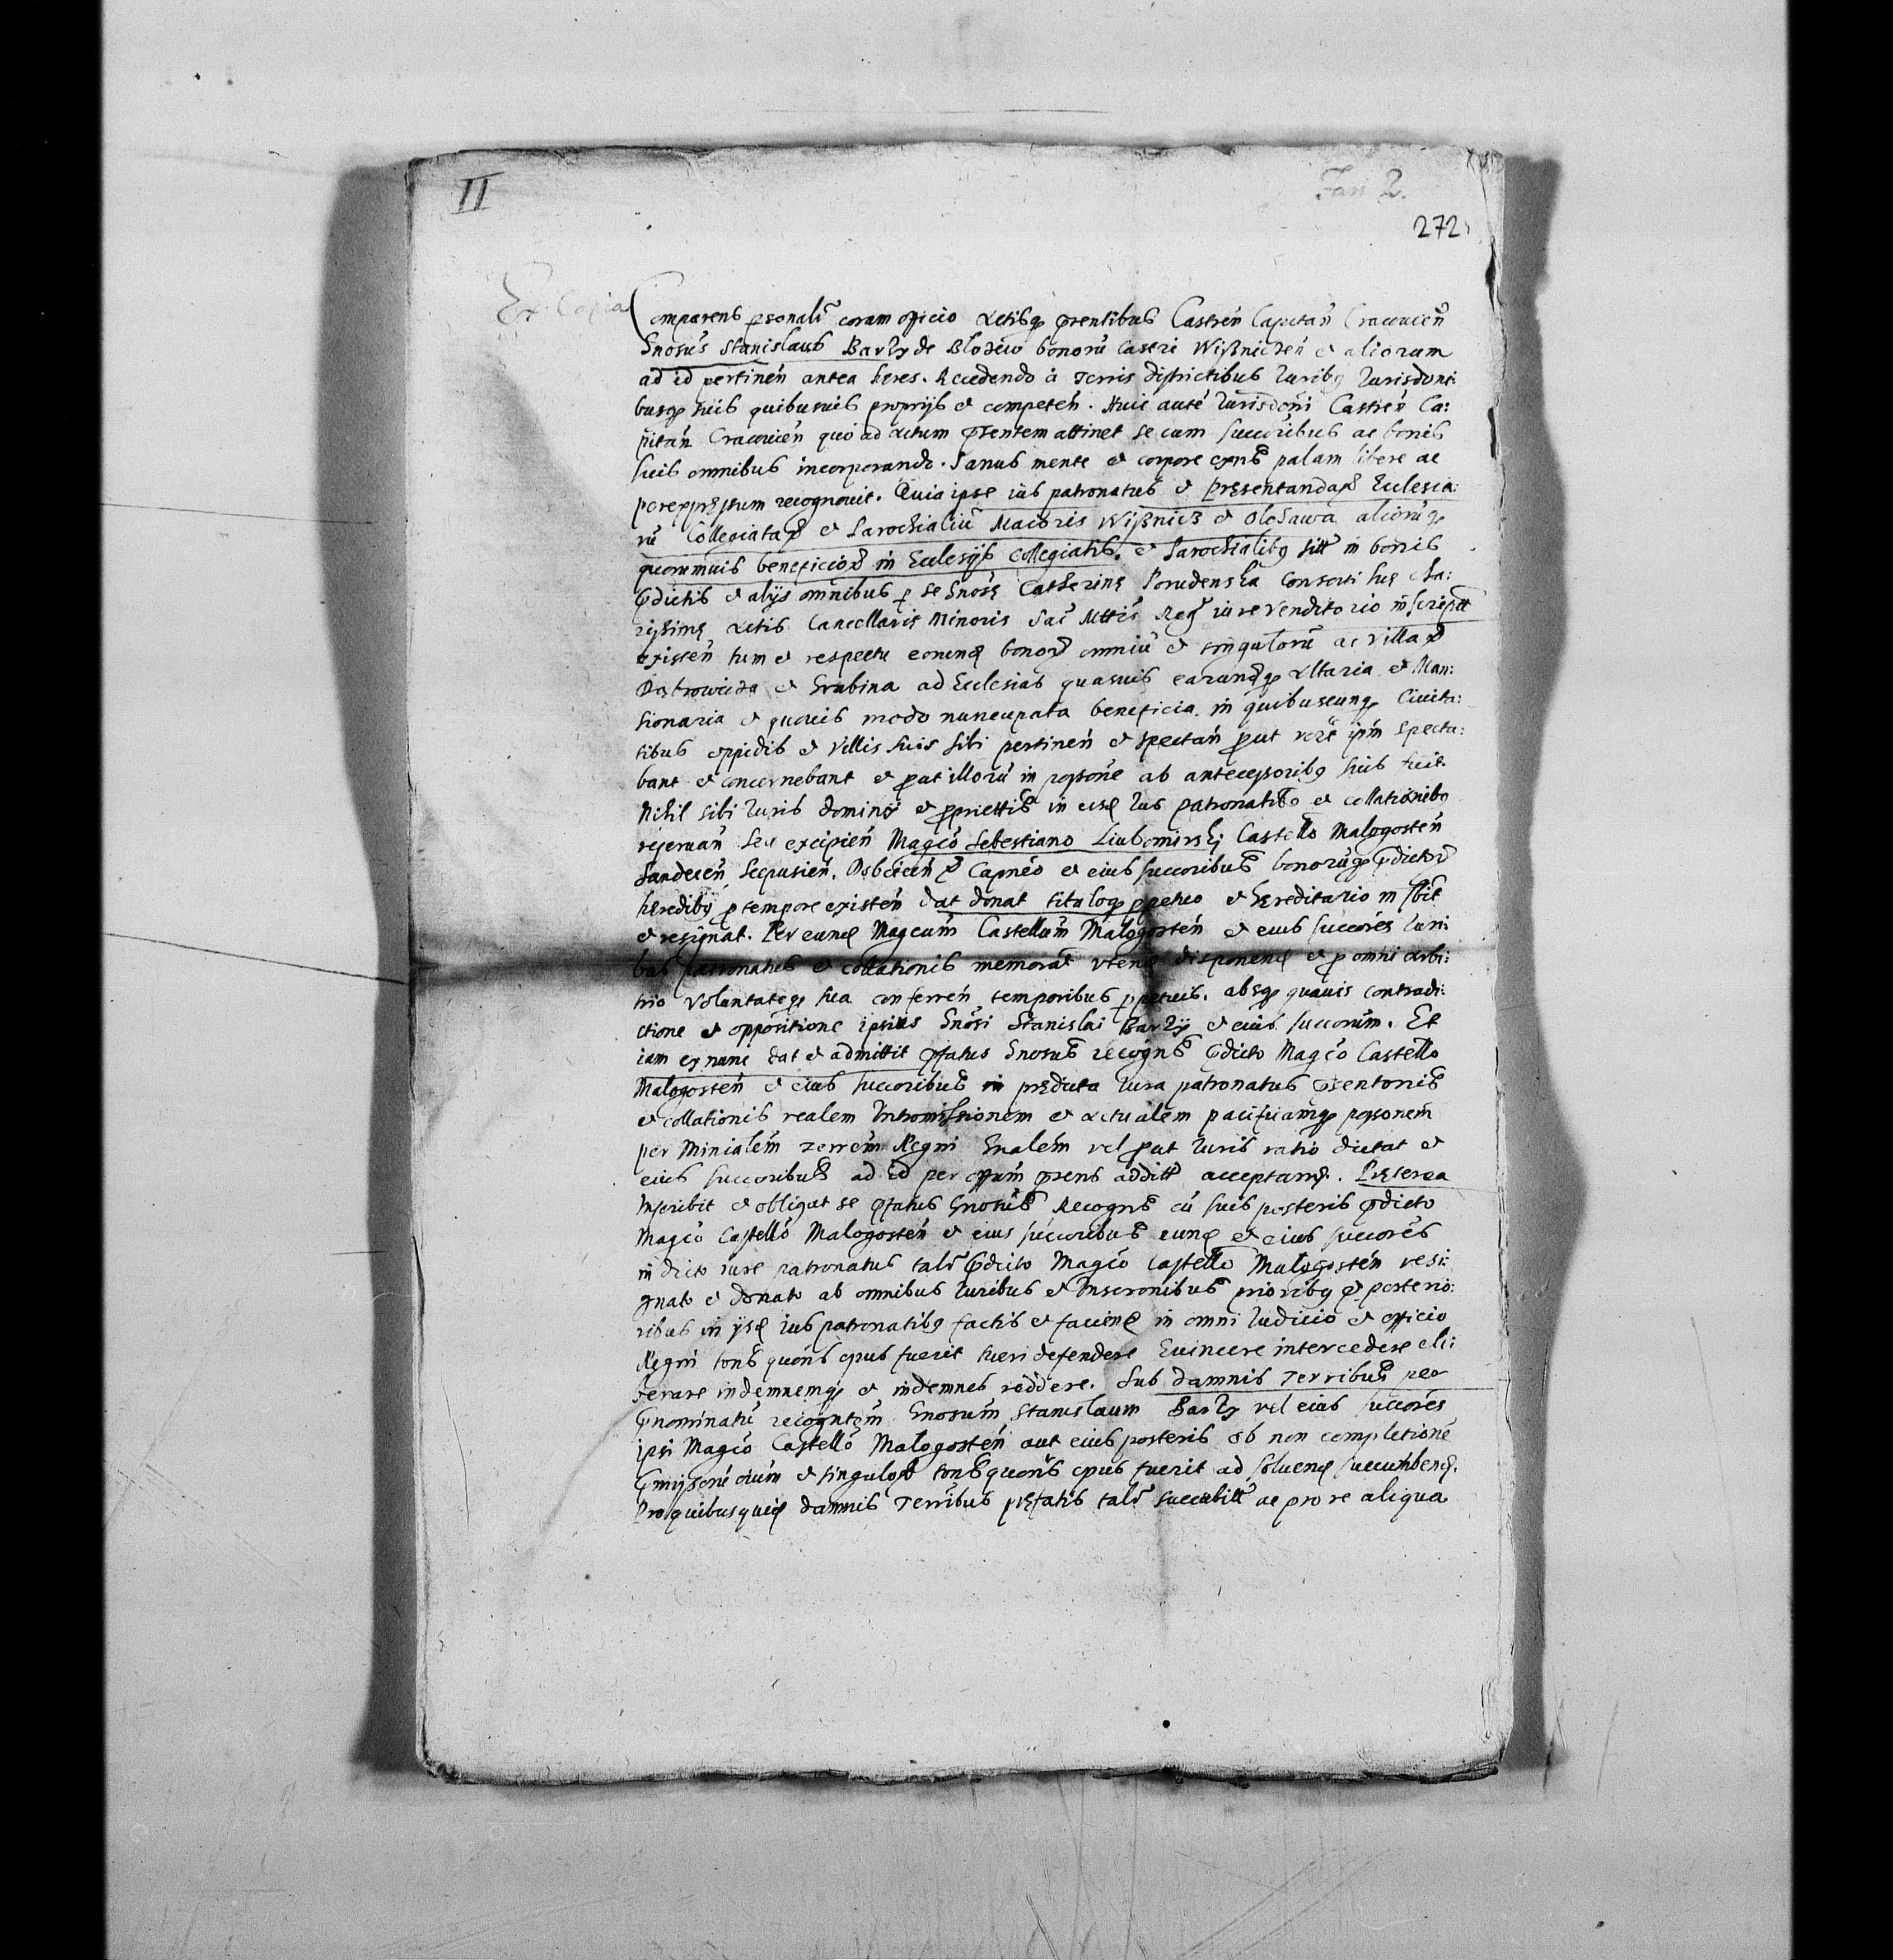 II
Fan 2.
272
Ex Copia
Comparens psonalr coram officio Actisq prentibus Castren Capitan Cracouien
Gnosus Stanislaus Barzy de Blozew bonoru Castri Wißniczen et aliorum
ad id pertinen antea heres. Recedendo à Terris districtibus Iuribq Iurisdoni:
busq suis quibusuis proprijs et competen. Huic aute Iurisdoni Castren Ca:
pitan Cracouien quo ad Actum prentem attinet se cum succoribus ac bonis
suis omnibus incorporando. Sanus mente et corpore exns palam libere ac
per expressum recognouit. Quia ipse ius patronatus et Presentandar Ecclesia:
ru Collegiatar et Parochialiu Maioris Wißnicz et Olesawa aliorq
quorumuis beneficior in Ecclesijs Collegiatis et Parochialibq sitt in bonis
pdictis et alijs omnibus p se Gnose Catherine Porudenska Consorti sue cha:
rissime Actis Cancellarie Minoris Sac Mttis Reg iure venditorio inscriptt
existen tum et respectu eorund bonor omniu et singuloru ac villar
et Grabina ad Ecclesias quasuis earundq Altaria et Man:
sionaria et quouis modo nuncupata beneficia in quibuscunq Ciuita:
tibus oppidis et villis suis sibi pertinen et spectan put ipm specta:
bant et concernebant et put illoru in possone ab antecessoribq suis fuit
Nihil sibi Iuris dominij et pprietatis in eisd Ius patronatibq et collationibq
reseruan seu excipien Magco Sebestiano Liubomirskj Castello Malogosten
Sandecen Scepusien. Dobcicen Capneo et eius succoribus bonoruq pdictor
heredibq p tempore existen dat donat tituloq ppetuo et hereditario inscbit
et resignat. Per eund Magcum Castellum Malogosten et eius succores Iuri
bus patronatus et collationis memorat vtend disponend et p omni arbi:
trio voluntateq sua conferren temporibus ppetuis. absq quauis contradi:
ctione et oppositione ipsius Gnosi Stanislai Barzy et eius succorum. Et
iam ex nunc dat et admittit pfatus Gnosus recogns pdicto Magco Castello
Malogosten et eius succoribus in predicta Iura patronatus presentonis
et collationis realem Intromissionem et Actualem pacificamq possonem
per Minialem Terrem Regni Gnalem vel put Iuris ratio dictat et
eius succoribus ad id per offum prens additt acceptand. Preterea
Inscribit et obligat se pfatus Gnosus Recogns cu suis posteris pdicto
Magco Castello Malogosten et eius succoribus eund et eius succores
in dicto iure patronatus talr pdicto Magco Castello Malogosten resi:
gnato et donato ab omnibus Iuribus et Inscronibus prioribq et posterio:
ribus in ijsd ius patronatibq factis et faciend in omni Iudicio et officio
Regni tons quons opus fuerit tueri defendere Euincere intercedere eli:
berare indemnemq et indemnes reddere. Sub damnis Terribus per
pnominatu recogntem Gnosum Stanislaum Barzy vel eius succores
ipsi Magco Castello Malogosten aut eius posteris ob non completione
pmissoru oium et singulor tons quons opus fuerit ad soluend succumbend.
Pro quibusquid damnis Terribus prefatis talr succubitt ac pro re aliqua